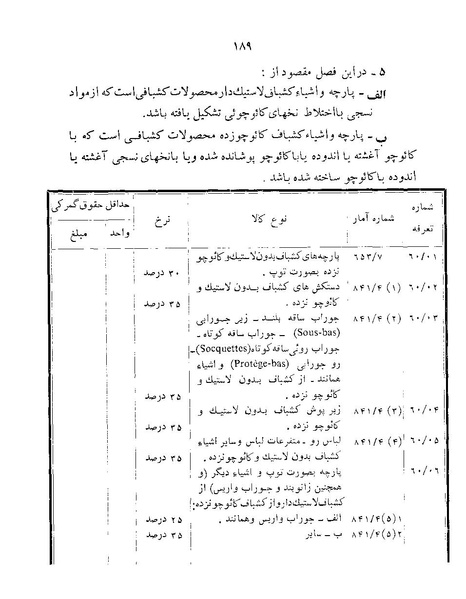 ۱۸۹
۵ - دراین فصل مقصود از :
الف - پارچه و اشیاء کشباف لاستیك‌دار محصولات کشبافی است که از مواد
نسجی با اختلاط نخهای کائوچوئی تشکیل یافته باشد.
ب - پارچه و اشیاء کشباف کائوچو زده محصولات کشبافی است که با
کائوچو آغشته یا اندوده یا با کائوچو پوشانده شده و یا با نخهای نسجی آغشته یا
اندوده با کائوچو ساخته شده باشد .
شماره تعرفه | شماره آمار | نوع کالا | نرخ | حداقل حقوق گمرکی
واحد | مبلغ
۶۰/۰۱ | ۶۵۳/۷ | پارچه‌های کشباف بدون لاستیك و کائوچو
نزده بصورت توپ . | ۳۰ درصد
۶۰/۰۲ | ۸۴۱/۴ (۱) | دستکش های کشباف بدون لاستیك و
کائوچو نزده . | ۳۵ درصد
۶۰/۰۳ | ۸۴۱/۴ (۲) | جوراب ساقه بلند - زیر جورابی
(Sous-bas) - جوراب ساقه کوتاه -
جوراب روئی ساقه کوتاه (Socquettes) -
رو جورابی (Protège-bas) و اشیاء
همانند - از کشباف بدون لاستیك و
کائوچو نزده . | ۳۵ درصد
۶۰/۰۴ | ۸۴۱/۴ (۳) | زیر پوش کشباف بدون لاستیك و
کائوچو نزده . | ۳۵ درصد
۶۰/۰۵ | ۸۴۱/۴ (۴) | لباس رو - متفرعات لباس و سایر اشیاء
کشباف بدون لاستیك و کائوچو نزده . | ۳۵ درصد
۶۰/۰۶ | پارچه بصورت توپ و اشیاء دیگر (و
همچنین زانوبند و جوراب واریس) از
کشباف لاستیك دار و از کشباف کائوچو زده :
۸۴۱/۴(۵)۱ | الف - جوراب واریس و همانند . | ۲۵ درصد
۸۴۱/۴(۵)۲ | ب - سایر | ۳۵ درصد